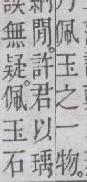 佩玉之一物。
閒。許君以瑀
無疑。佩玉石